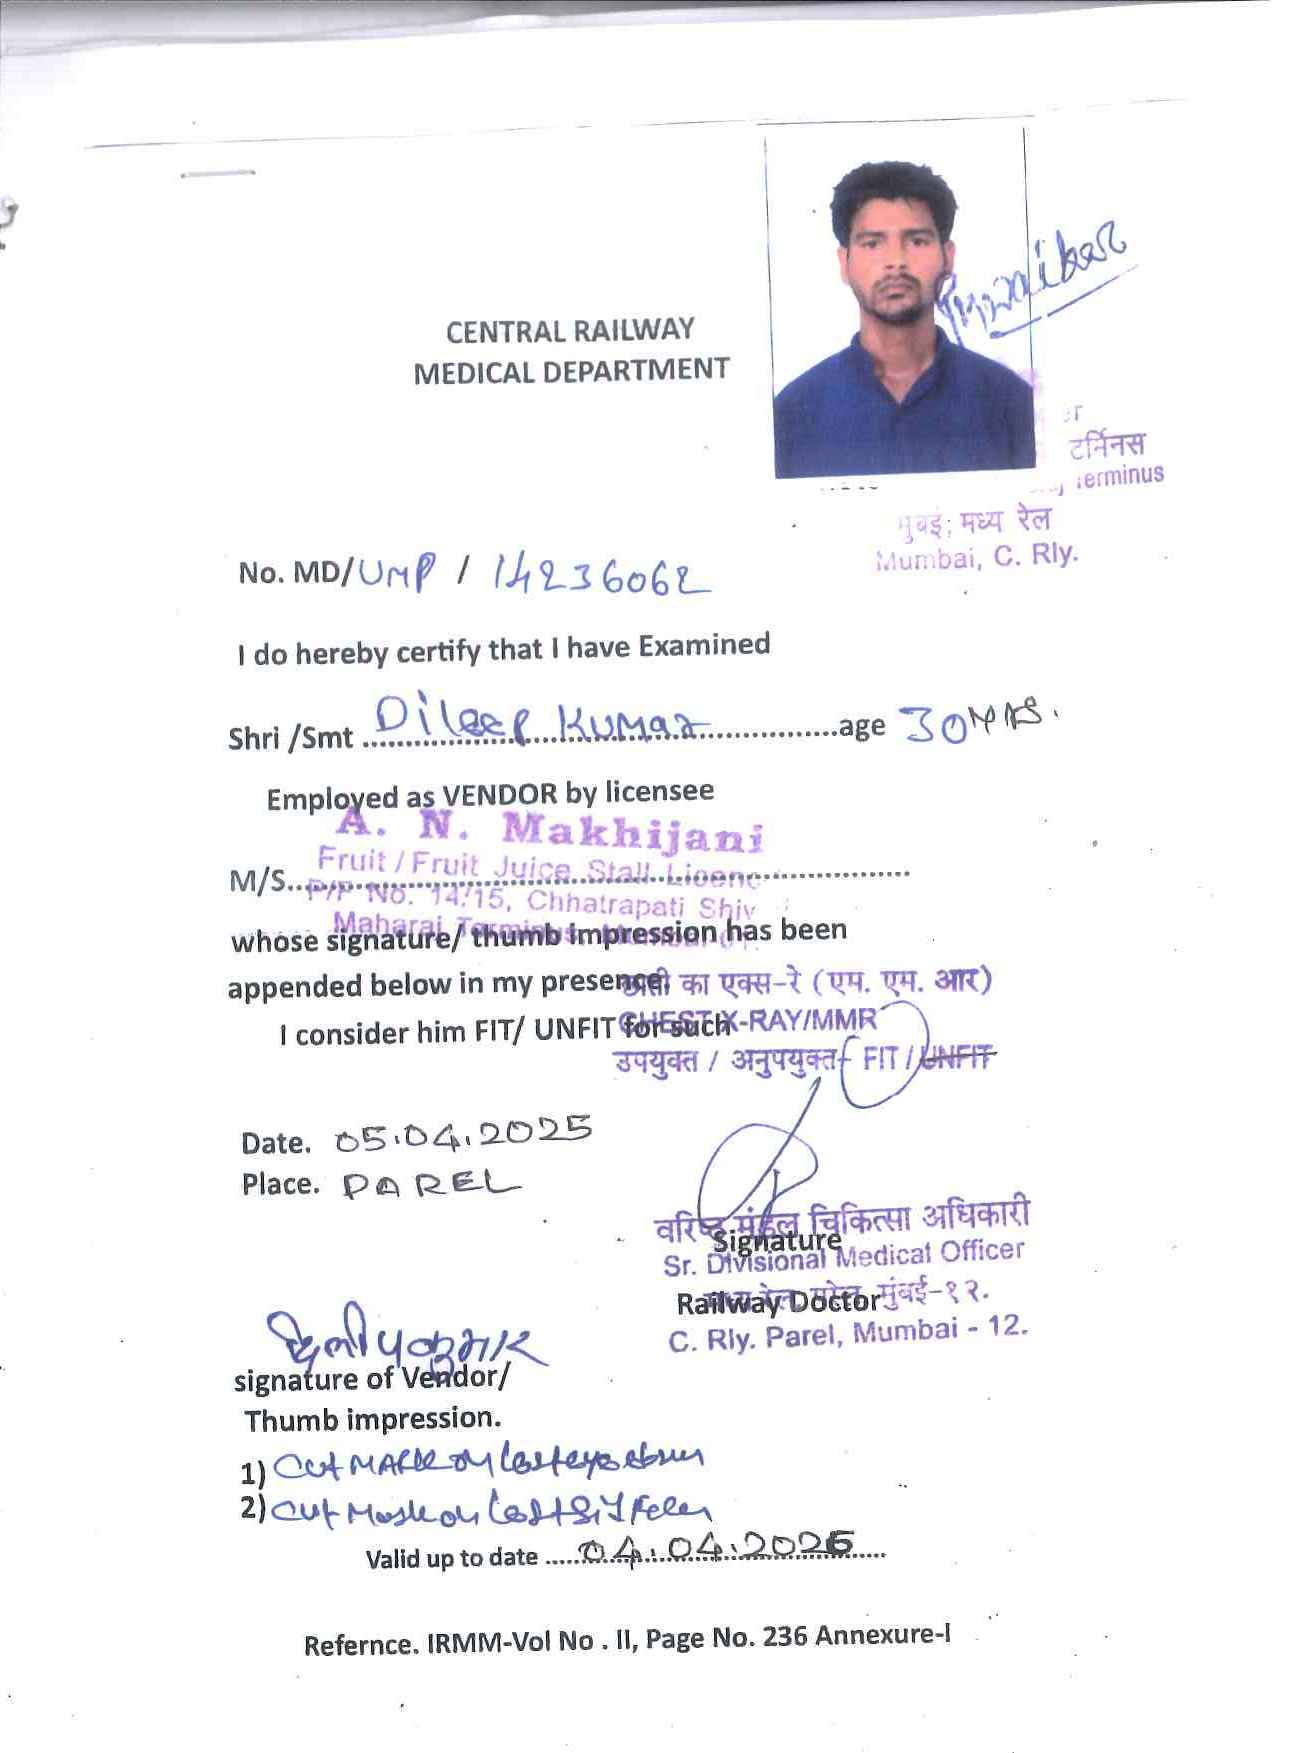 CENTRAL RAILWAY
MEDICAL DEPARTMENT
टर्मिनस
Terminus
मुंबई, मध्य रेल
Mumbai, C. Rly.
No. MD/UMP / 14236062
I do hereby certify that I have Examined
Shri /Smt Dileep Kumar age 30 yrs.
Employed as VENDOR by licensee
A. N. Makhijani
Fruit / Fruit Juice Stall Licen
M/S
P/P No. 14/15, Chhatrapati Shiv
Maharaj Terminus
whose signature/ thumb impression has been
appended below in my presence.
का एक्स-रे (एम. एम. आर)
CHEST X-RAY/MMR
I consider him FIT/ UNFIT for such
उपयुक्त / अनुपयुक्त FIT / UNFIT
Date. 05.04.2025
Place. PAREL
वरिष्ठ मंडल चिकित्सा अधिकारी
Signature
Sr. Divisional Medical Officer
Railway Doctor
मध्य रेल, परेल, मुंबई-१२.
C. Rly. Parel, Mumbai - 12.
signature of Vendor/
Thumb impression.
1) Cut MARK on
2) Cut Mark on
Valid up to date 04.04.2026
Refernce. IRMM-Vol No . II, Page No. 236 Annexure-I